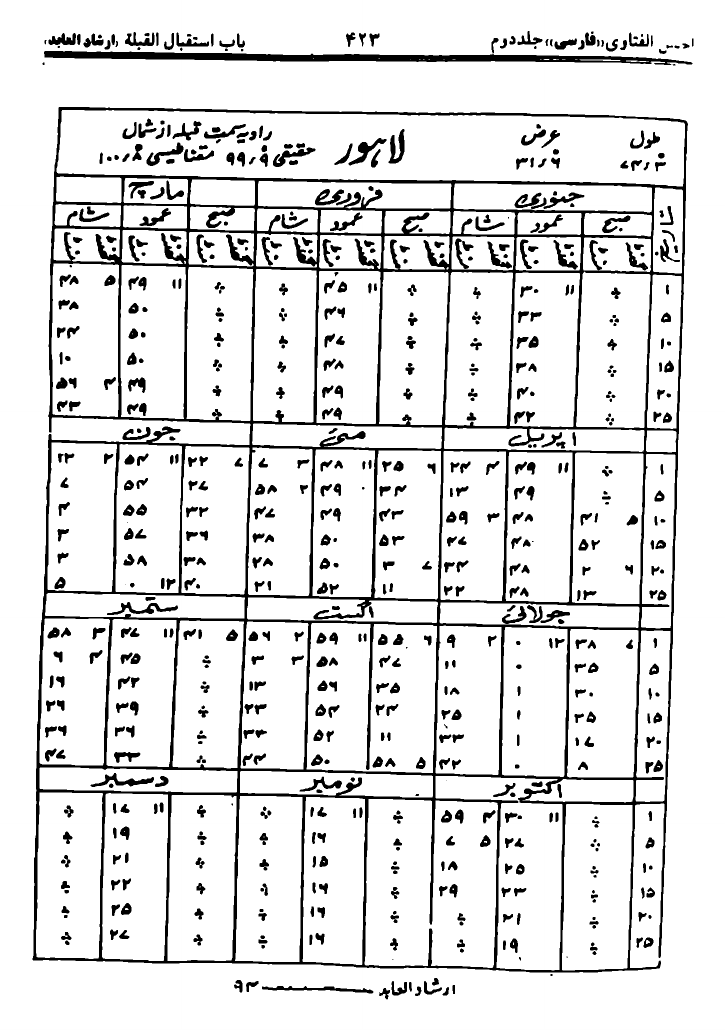 الفتاوی «فارسی» جلد دوم ۴۲۳ باب استقبال القبلة «ارشاد العابد»
طول عرض لاہور زاویہ سمت قبلہ از شمال
۷۴٫۳ ۳۱٫۶ حقیقی ۹۹٫۹ مقناطیسی ۱۰۰٫۸
جنوری فروری مارچ
صبح عمود شام صبح عمود شام صبح عمود شام
۱ ÷ ۱۱ ۳۰ ÷ ÷ ۱۱ ۴۵ ÷ ÷ ۱۱ ۴۹ ۵ ۴۸
۵ ÷ ۳۳ ÷ ÷ ۴۶ ÷ ÷ ۵۰ ۳۸
۱۰ ÷ ۳۵ ÷ ÷ ۴۷ ÷ ÷ ۵۰ ۲۴
۱۵ ÷ ۳۸ ÷ ÷ ۴۸ ÷ ÷ ۵۰ ۱۰
۲۰ ÷ ۴۰ ÷ ÷ ۴۹ ÷ ÷ ۴۹ ۴ ۵۶
۲۵ ÷ ۴۲ ÷ ÷ ۴۹ ÷ ÷ ۴۹ ۴۳
اپریل مئی جون
۱ ÷ ۱۱ ۴۹ ۴ ۲۴ ۶ ۲۵ ۱۱ ۴۸ ۳ ۷ ۷ ۲۲ ۱۱ ۵۴ ۲ ۱۳
۵ ÷ ۴۹ ۱۳ ۳۴ ۴۹ ۲ ۵۸ ۲۷ ۵۴ ۷
۱۰ ۵ ۴۱ ۴۸ ۳ ۵۹ ۴۳ ۴۹ ۴۷ ۳۲ ۵۵ ۴
۱۵ ۵۲ ۴۸ ۴۷ ۵۳ ۵۰ ۳۸ ۳۶ ۵۷ ۳
۲۰ ۶ ۲ ۴۸ ۳۴ ۷ ۳ ۵۰ ۲۸ ۳۸ ۵۸ ۳
۲۵ ۱۳ ۴۸ ۲۲ ۱۱ ۵۲ ۲۱ ۴۰ ۱۲ ۰ ۵
جولائی اگست ستمبر
۱ ۷ ۳۸ ۱۲ ۰ ۲ ۹ ۶ ۵۵ ۱۱ ۵۹ ۲ ۵۶ ۵ ۴۱ ۱۱ ۴۷ ۳ ۵۸
۵ ۳۵ ۰ ۱۱ ۴۷ ۵۸ ۳ ۳ ÷ ۴۵ ۴ ۶
۱۰ ۳۰ ۱ ۱۸ ۳۵ ۵۶ ۱۳ ÷ ۴۲ ۱۶
۱۵ ۲۵ ۱ ۲۵ ۲۴ ۵۴ ۲۳ ÷ ۳۹ ۲۶
۲۰ ۱۷ ۱ ۳۳ ۱۱ ۵۲ ۳۴ ÷ ۳۶ ۳۶
۲۵ ۸ ۰ ۴۲ ۵ ۵۸ ۵۰ ۴۴ ÷ ۳۳ ۴۷
اکتوبر نومبر دسمبر
۱ ÷ ۱۱ ۳۰ ۴ ۵۹ ÷ ۱۱ ۱۷ ÷ ÷ ۱۱ ۱۷ ÷
۵ ÷ ۲۷ ۵ ۷ ÷ ۱۶ ÷ ÷ ۱۹ ÷
۱۰ ÷ ۲۵ ۱۸ ÷ ۱۵ ÷ ÷ ۲۱ ÷
۱۵ ÷ ۲۳ ۲۹ ÷ ۱۶ ÷ ÷ ۲۲ ÷
۲۰ ÷ ۲۱ ÷ ÷ ۱۶ ÷ ÷ ۲۵ ÷
۲۵ ÷ ۱۹ ÷ ÷ ۱۶ ÷ ÷ ۲۷ ÷
ارشاد العابد ــــــ ۹۴